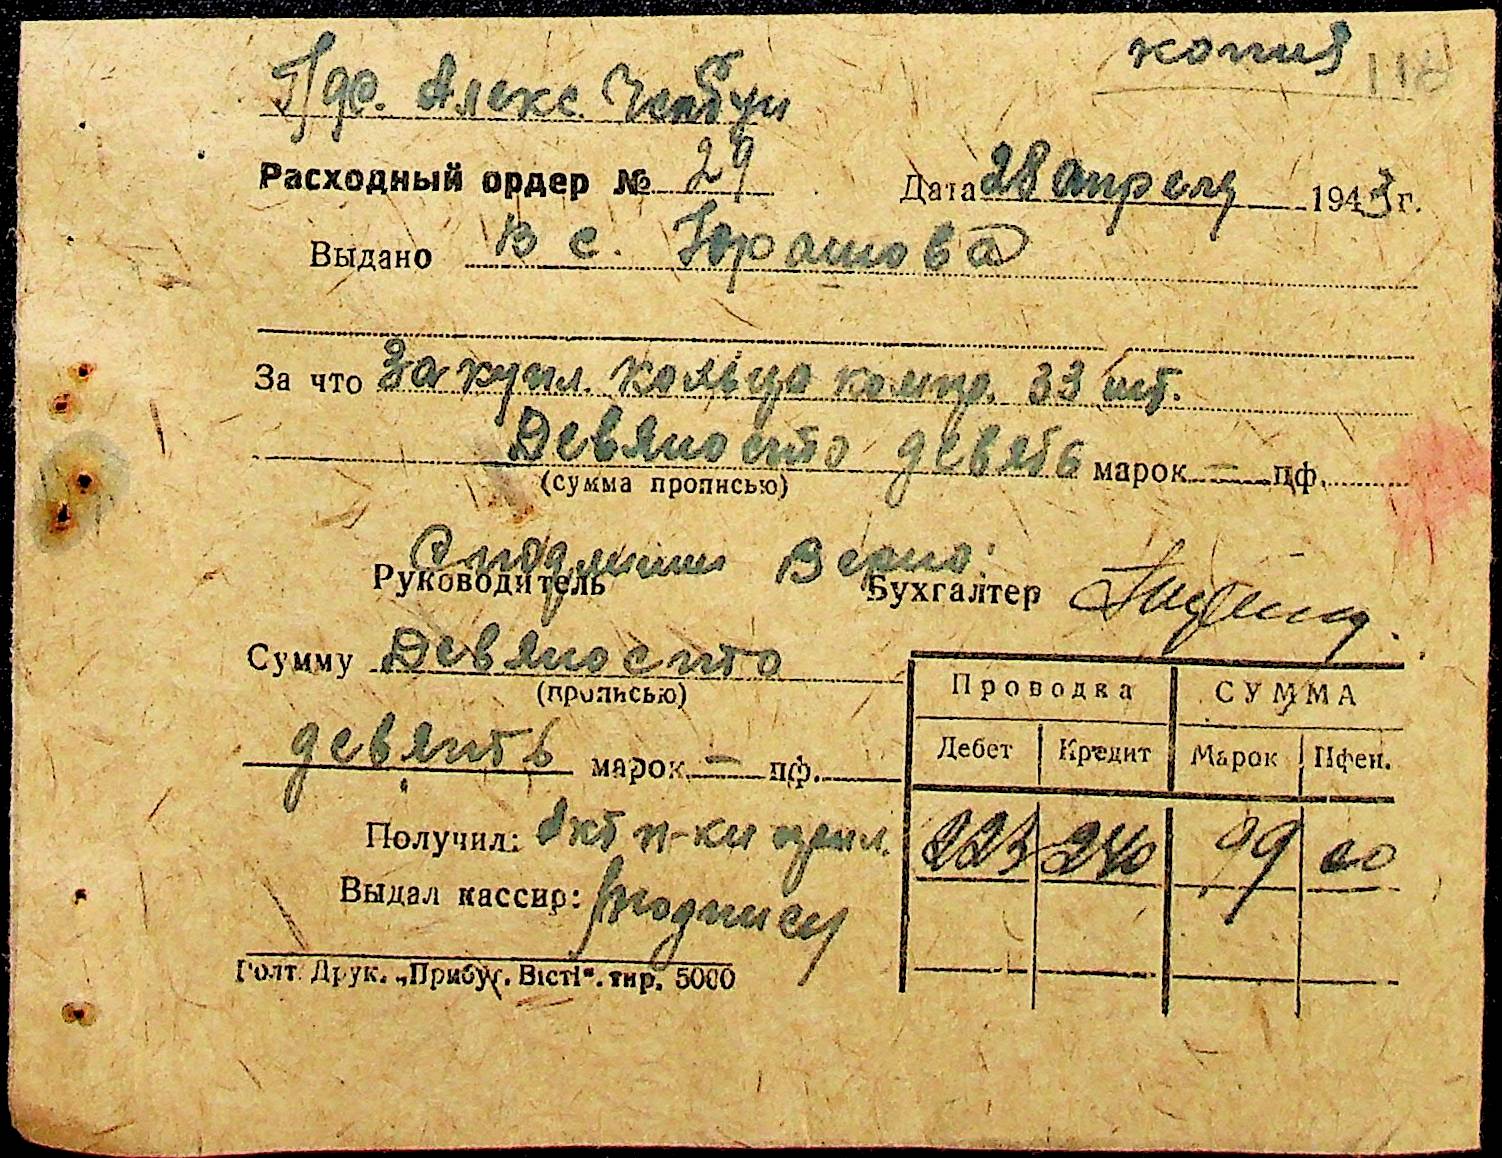 копия 118
Алекс.
Расходный ордер № 29 Дата 28 апреля 1943 г.
Выдано В с. Юрашова
За что За купл. кольца компр. 33 шт.
Девяносто девять марок — пф.
(сумма прописью)
С подлинным Верно:
Руководитель Бухгалтер
Сумму Девяносто
(прописью)
девять марок — пф.
Получил: Акт п-ки
Выдал кассир: Подпись
Голт. Друк. „Прибуг. Вісті". тир. 5000
Проводка СУММА
Дебет Кредит Марок Пфен.
223 240 99 00